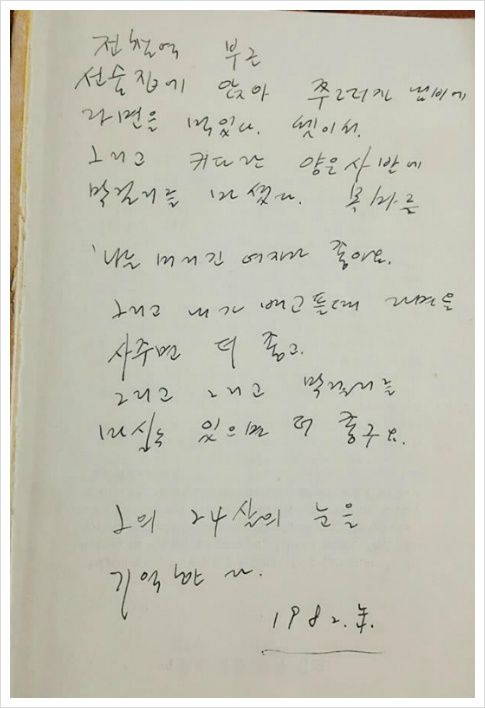 전철역 부근
선술집에 앉아 쭈그러진 남비에
라면을 먹었다. 셋이서.
그리고 커다란 양은사발에
막걸리를 마셨다.
'나는 머리긴 여자가 좋아요.
그리고 내가 배고플때 라면을
사주면 더 좋고.
그리고 그리고 막걸리를
마실수 있으면 더 좋구요.
그의 24살의 눈을
기억한다.
1982.年.